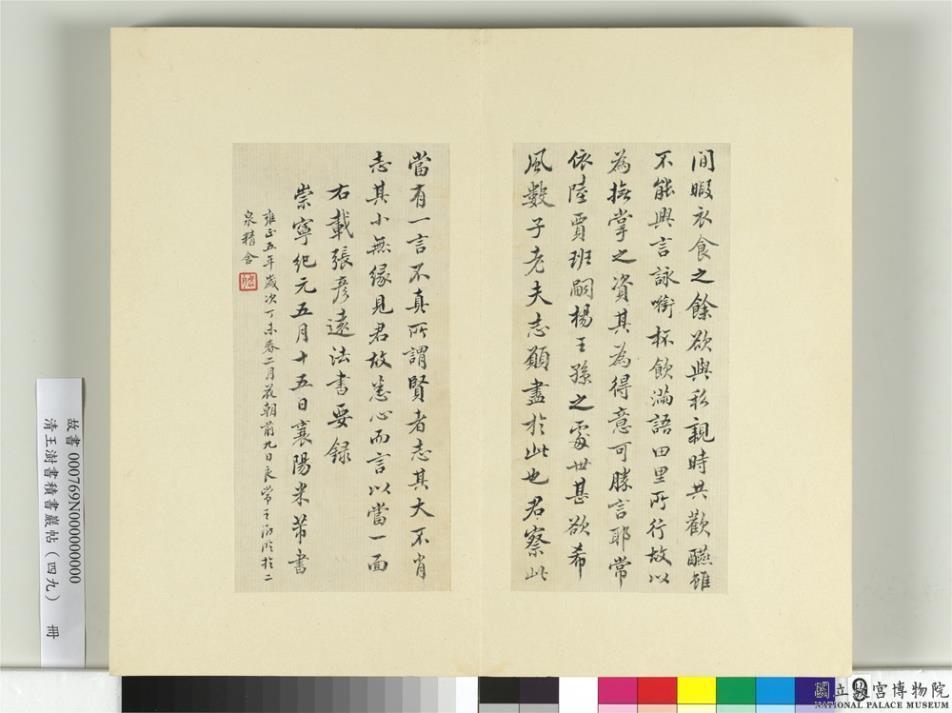 間暇衣食之餘欲與私親時共歡醼雖
不能興言詠銜杯飲滿語田里所行故以
為撫掌之資其為得意可勝言耶常
依陸賈班嗣楊王孫之處世甚欲希
風數子老夫志願盡於此也君察此
當有一言不真所謂賢者志其大不肖
志其小無緣見君故悉心而言以當一面
右載張彥遠法書要錄
崇寧紀元五月十五日襄陽米芾書
雍正五年歲次丁未春二月花朝前九日良常王澍臨於二
泉精舍
故書 000769N000000000
清王澍書積書巖帖（四九） 冊
國立故宮博物院
NATIONAL PALACE MUSEUM